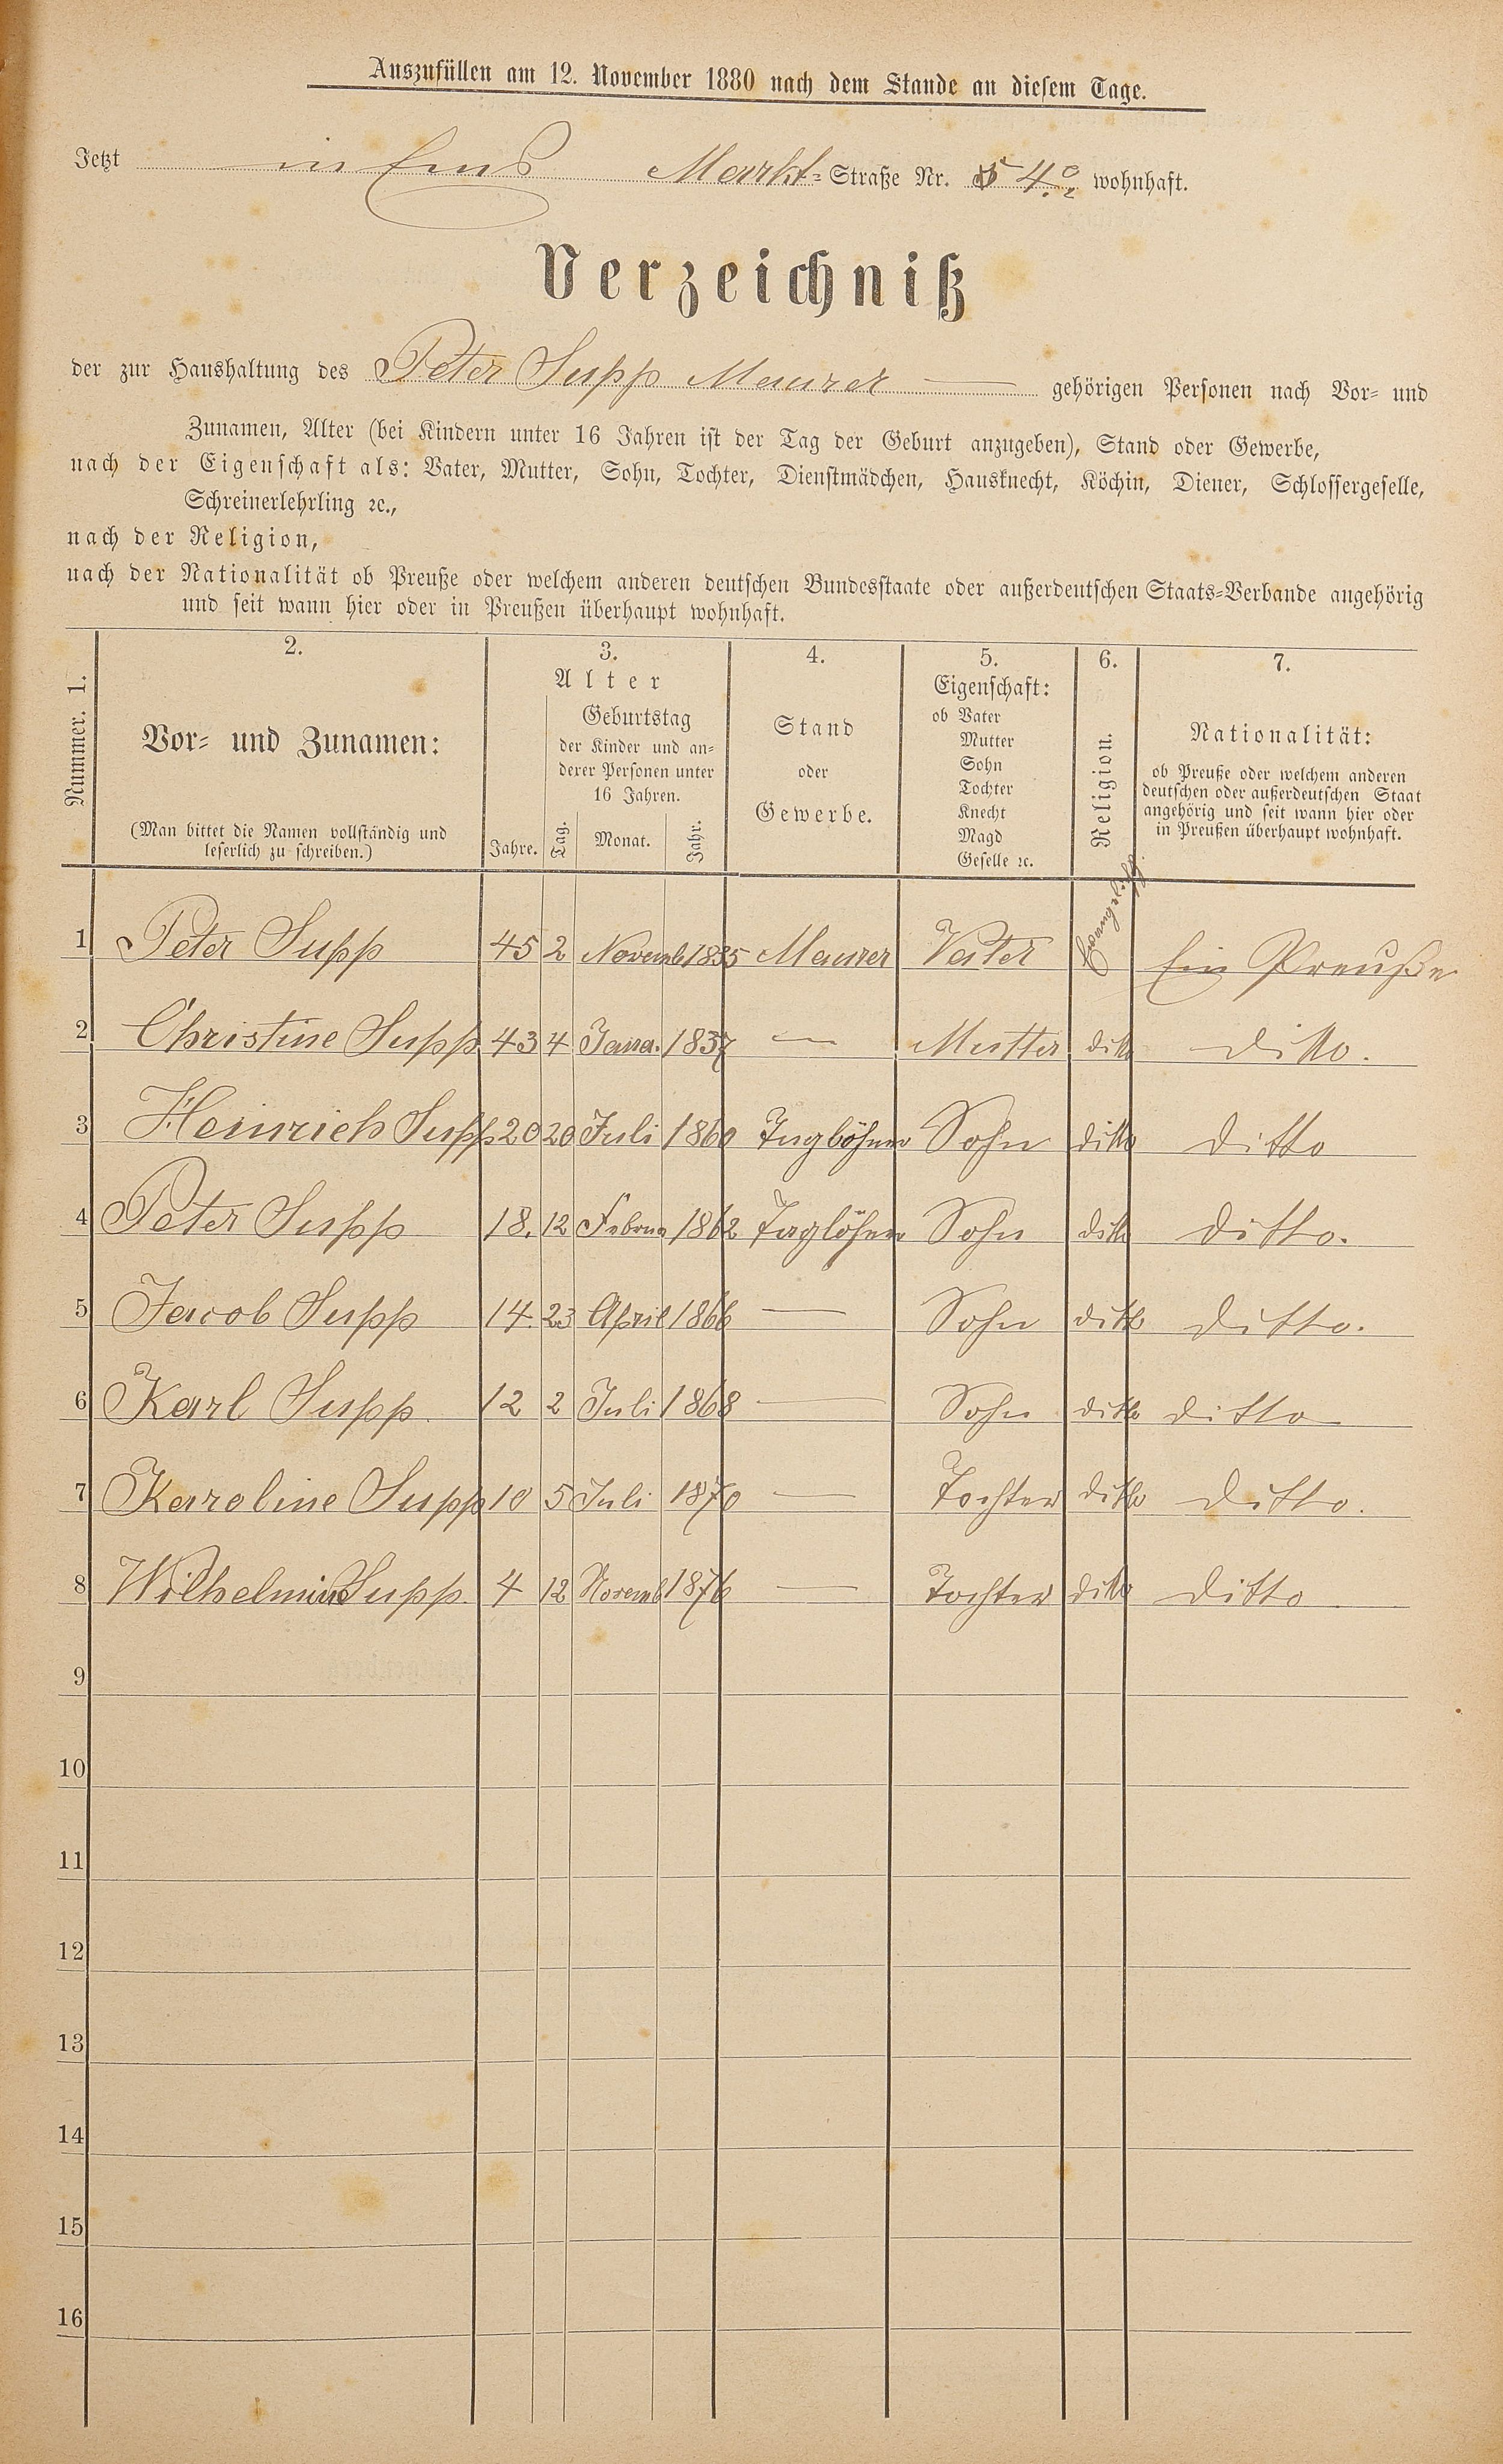 Auszufüllen am 12. November 1880 nach dem Stande an diesem Tage.
Jetzt in Ems Markt-Straße Nr. 54 wohnhaft.
Verzeichniß
der zur Haushaltung des Peter Supp Maurer — gehörigen Personen nach Vor- und
Zunamen, Alter (bei Kindern unter 16 Jahren ist der Tag der Geburt anzugeben), Stand oder Gewerbe,
nach der Eigenschaft als: Vater, Mutter, Sohn, Tochter, Dienstmädchen, Hausknecht, Köchin, Diener, Schlossergeselle,
Schreinerlehrling ꝛc.,
nach der Religion,
nach der Nationalität ob Preuße oder welchem anderen deutschen Bundesstaate oder außerdeutschen Staats-Verbande angehörig
und seit wann hier oder in Preußen überhaupt wohnhaft.
Nummer. 1.
2.
Vor- und Zunamen:
(Man bittet die Namen vollständig und
leserlich zu schreiben.)
3.
Alter
Geburtstag
der Kinder und an-
derer Personen unter
16 Jahren.
Jahre. Tag. Monat. Jahr.
4.
Stand
oder
Gewerbe.
5.
Eigenschaft:
ob Vater
Mutter
Sohn
Tochter
Knecht
Magd
Geselle ꝛc.
6.
Religion.
7.
Nationalität:
ob Preuße oder welchem anderen
deutschen oder außerdeutschen Staat
angehörig und seit wann hier oder
in Preußen überhaupt wohnhaft.
1 Peter Supp 45 2 Novemb 1835 Maurer Vater Evangelisch Ein Preuße
2 Christine Supp 43 4 Janua. 1837 — Mutter ditto ditto.
3 Heinrich Supp 20 20 Juli 1860 Taglöhner Sohn ditto ditto
4 Peter Supp 18. 12 Februa 1862 Taglöhner Sohn ditto ditto.
5 Jacob Supp 14. 23 April 1866 — Sohn ditto ditto.
6 Karl Supp 12 2 Juli 1868 — Sohn ditto ditto
7 Karoline Supp 10 5 Juli 1870 — Tochter ditto ditto.
8 Wilhelmine Supp 4 12 Novemb 1876 — Tochter ditto ditto
9
10
11
12
13
14
15
16